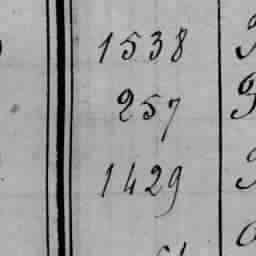 1538
257
1429